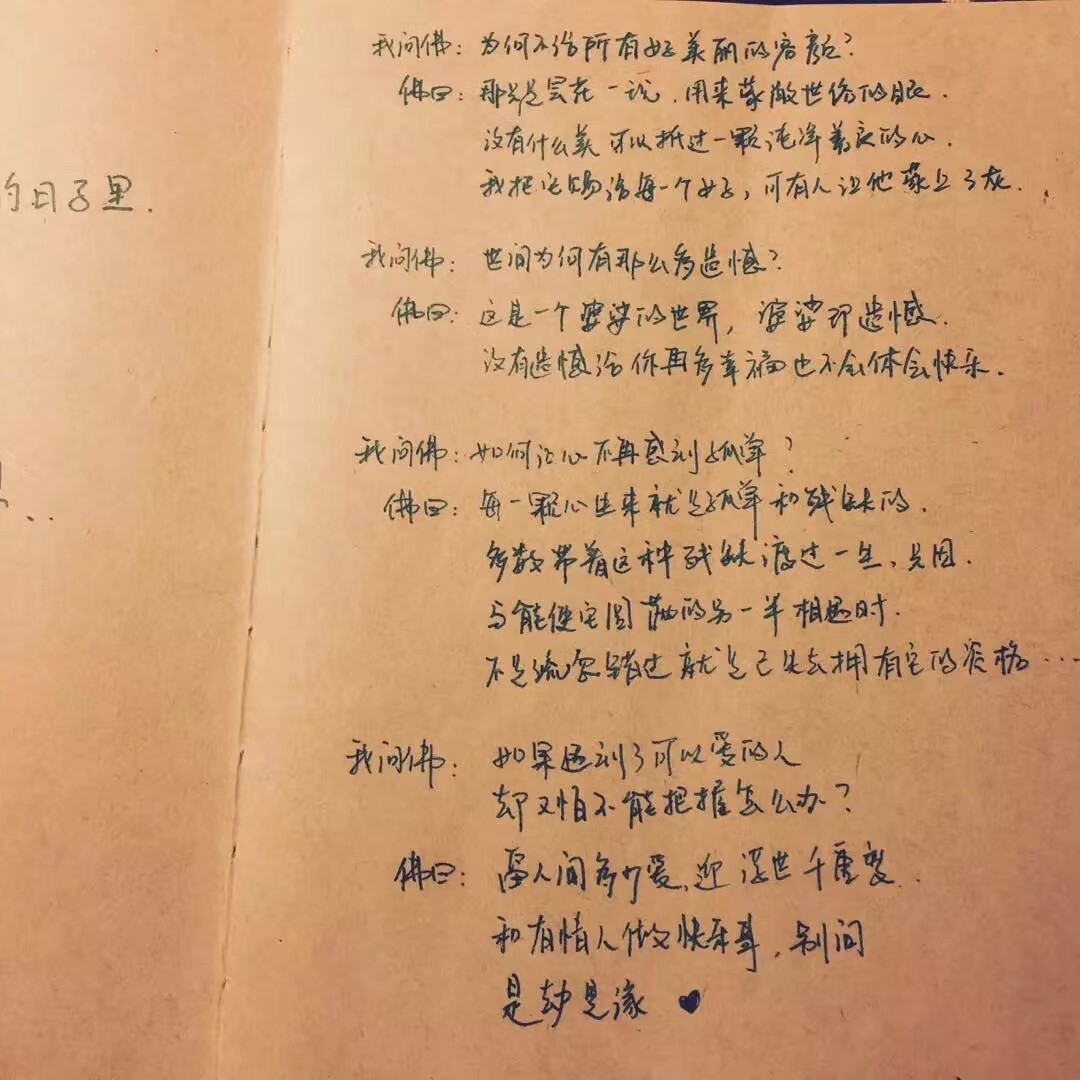 的日子里.
我问佛：为何不给所有女子美丽的容颜？
佛曰：那只是昙花一现，用来蒙敝世俗的眼.
没有什么美可以抵过一颗纯净善良的心.
我把它赐给每一个女子，可有人让他蒙上了灰.
我问佛：世间为何有那么多遗憾？
佛曰：这是一个婆娑的世界，婆娑即遗憾.
没有遗憾给你再多幸福也不会体会快乐.
我问佛：如何让心不再感到孤单？
佛曰：每一颗心生来就是孤单和残缺的.
多数带着这种残缺渡过一生，只因.
与能使它圆满的另一半相遇时.
不是疏忽错过就是已失去拥有它的资格…
我问佛：如果遇到了可以爱的人
却又怕不能把握怎么办？
佛曰：留人间多少爱，迎浮世千重变.
和有情人做快乐事，别问
是劫是缘